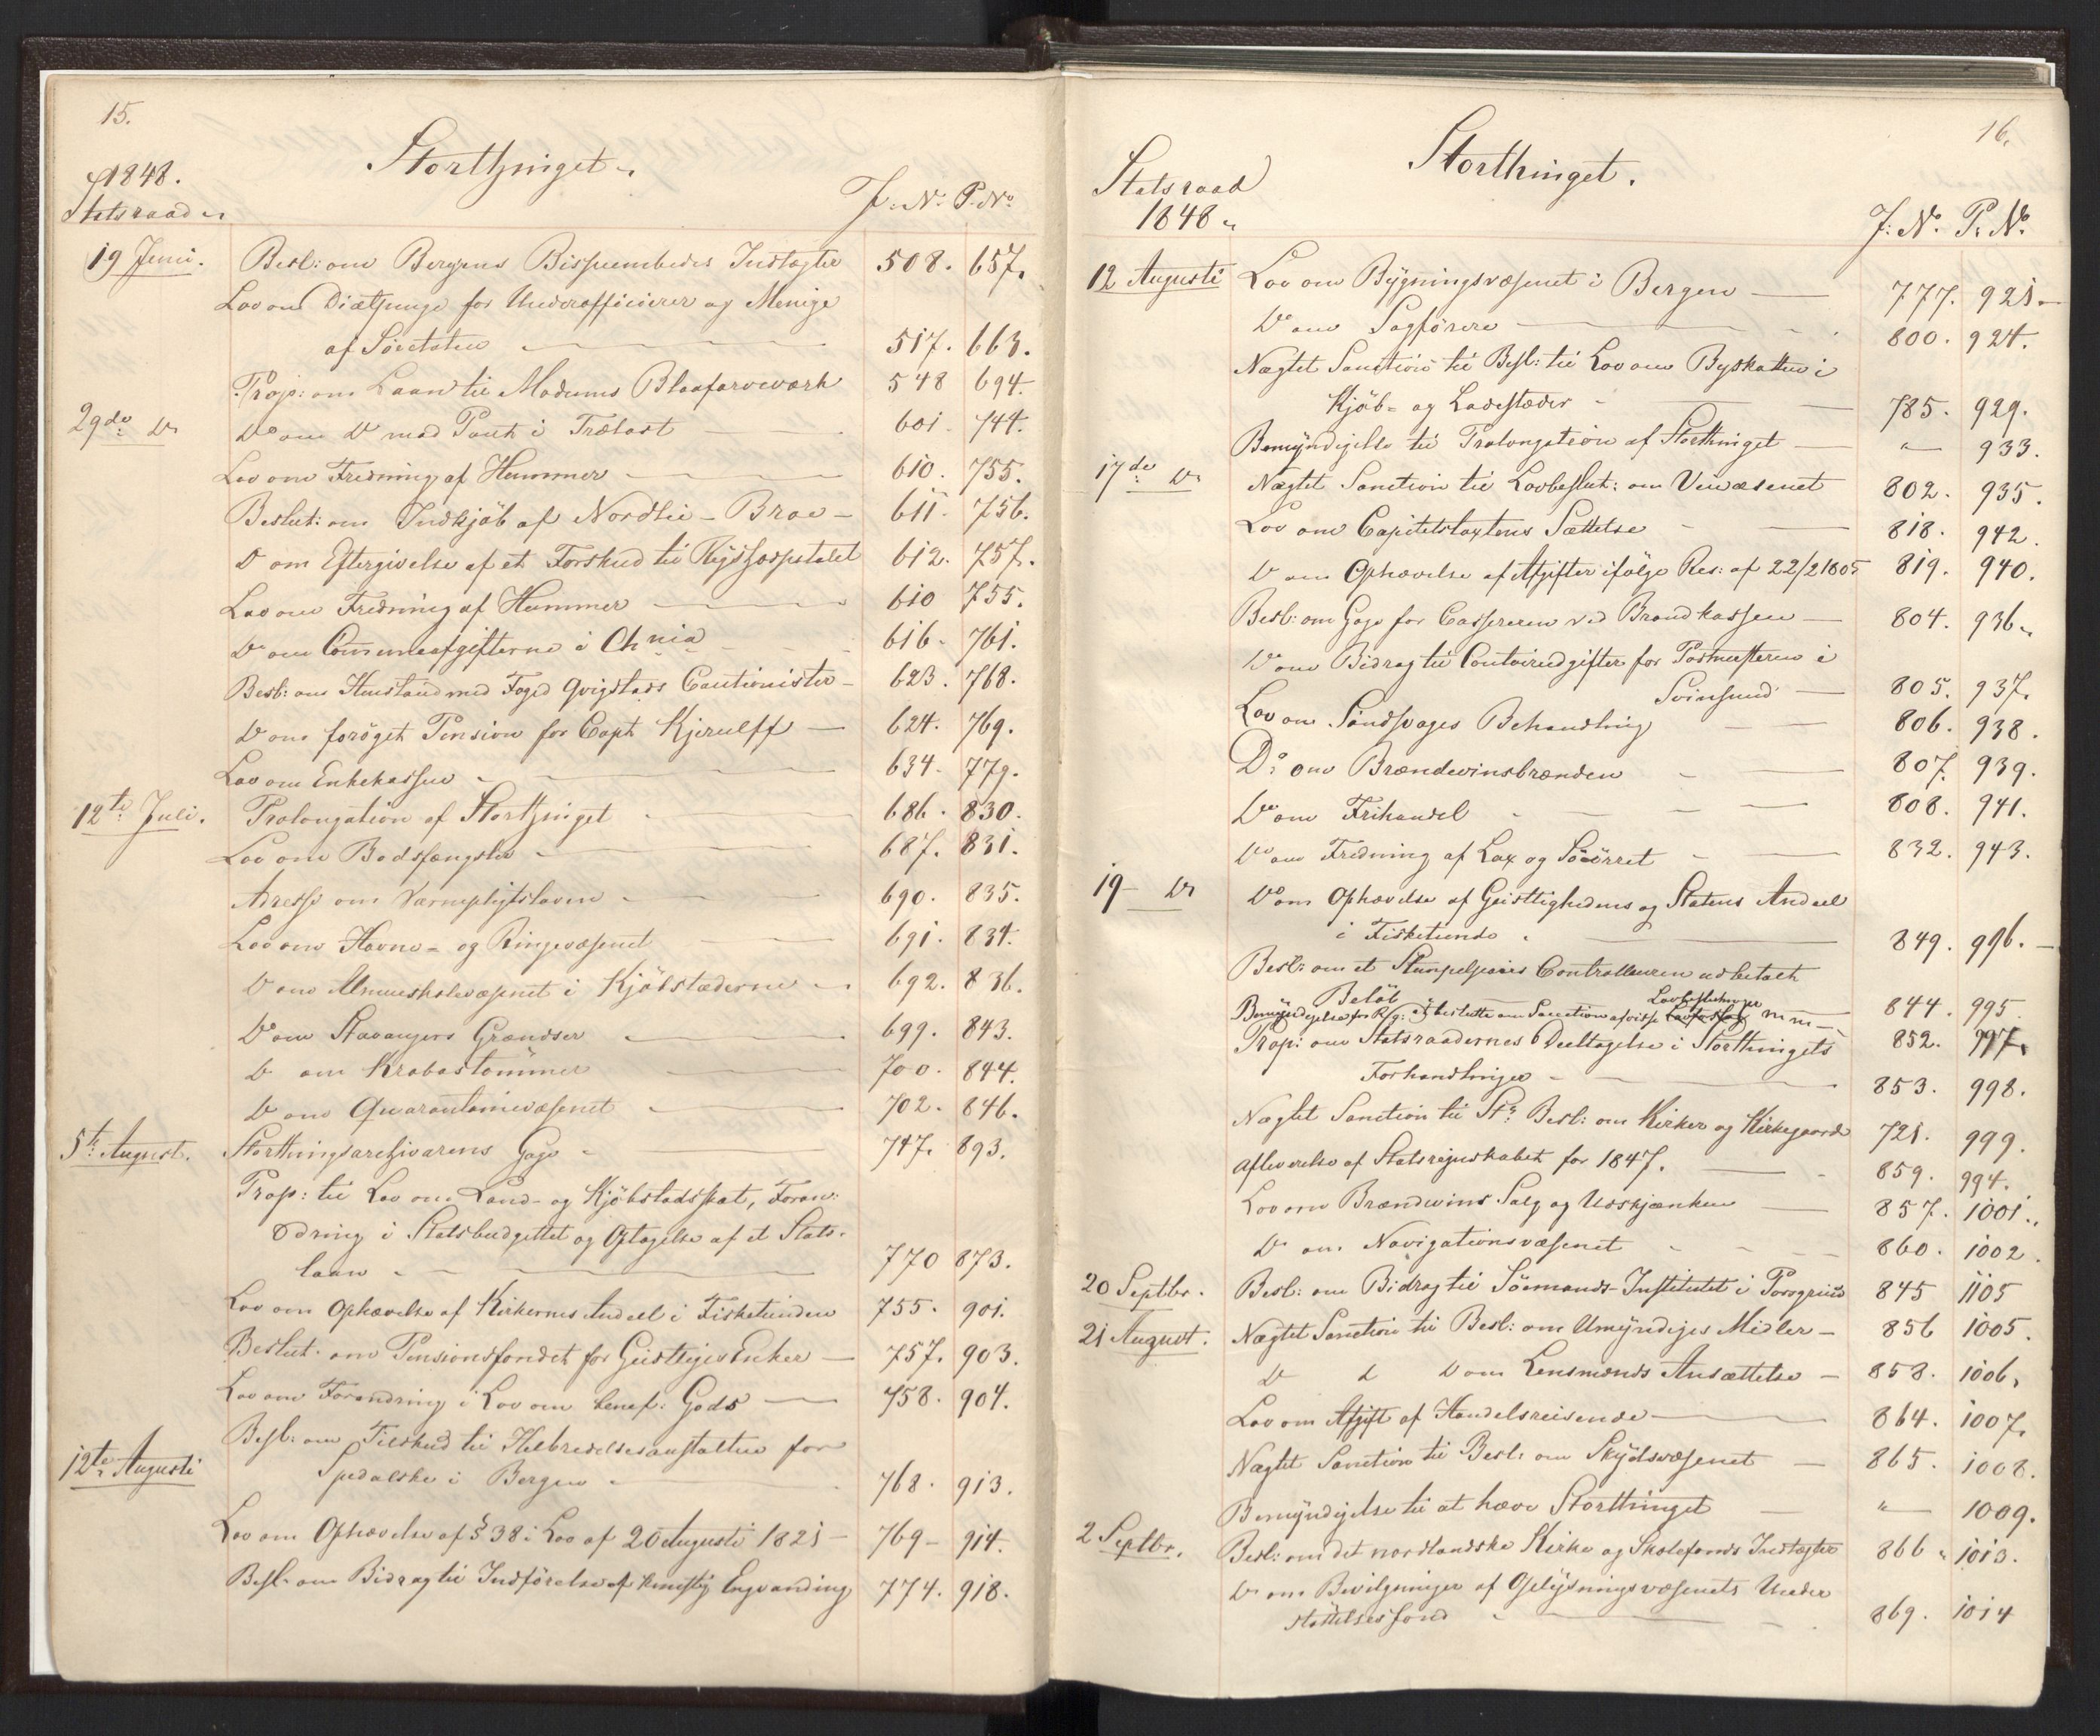 15.
Storthinget.
1848.
Statsraad
J. No. P. No.
19 Juni. Besl: om Bergens Bispeembedes Indtægter 508. 657.
Lov om Diætpenge for Underofficierer og Menige
af Søetaten 517. 663.
Prop: om Laan til Modums Blaafarveværk 548 694.
29de Do Do om Do mod Pant i Trælast 601. 744.
Lov om Fredning af Hummer 610. 755.
Beslut: om Indkjøb af Nordlie-Brae 611. 756.
Do om Eftergivelse af et Forskud til Rigshospitalet 612. 757.
Lov om Fredning af Hummer 610 755.
Do om Communeafgifterne i Chnia 616. 761.
Besl: om Henstand med Foged Qvigstads Cautionister 623. 768.
Do om forøget Pension for Capt Kjerulff 624. 769.
Lov om Enkekassen 634. 779.
12te Juli. Prolongation af Storthinget 686. 830.
Lov om Bodsfængsler 687. 831.
Adresse om Værnepligtsloven 690. 835.
Lov om Havne- og Ringevæsenet 691. 834.
Do om Almueskolevæsenet i Kjøbstæderne 692. 836.
Do om Stavangers Grændser 699. 843.
Do om Krabastømmer 700. 844.
Do om Quarantainevæsenet 702. 846.
5te August. Storthingsarchivarens Gage 747. 893.
Prop: til Lov om Land- og Kjøbstadsskat, Foran:
dring i Statsbudgettet og Optagelse af et Stats-
laan 770 873.
Lov om Ophævelse af Kirkernes Andeel i Fisketienden 755. 901.
Beslut. om Pensionsfondet for Geistliges Enker 757. 903.
Lov om Forandring i Lov om benef: Gods 758. 904.
12te Augusti Besl: om Tilskud til Helbredelsesanstalten for
Spedalske i Bergen 768. 913.
Lov om Ophævelse af § 38 i Lov af 20 Augusti 1821 769 914.
Besl. om Bidrag til Indførelse af kunstig Engvanding 774. 918.
16.
Storthinget.
Statsraad
1848
J: No. P. No.
12 Augusti Lov om Bygningsvæsenet i Bergen 777. 921
Do om Sagførere 800. 924.
Nægtet Sanction til Besl: til Lov om Byskatten i
Kjøb- og Ladestæder 785. 929.
Bemyndigelse til Prolongation af Storthinget " 933.
17de Do Nægtet Sanction til Lovbeslut: om Veivæsenet 802. 935.
Lov om Capitelstaxtens Sættelse 818. 942.
Do om Ophævelse af Afgifter ifølge Res: af 22/2 1805 819. 940.
Besl: om Gage for Cassereren ved Brandkassen 804. 936
Do om Bidrag til Contoirudgifter for Postmesteren i
Svinsund 805. 937.
Lov om Sandflugts Behandling 806. 938.
Do om Brændevinsbrænden 807. 939.
Do om Frihandel 808. 941.
Do om Fredning af Lax og Søørret 832. 943.
19 Do Do om Ophævelse af Geistlighedens og Statens Andeel
i Fisketiende 849. 996.
Besl: om et Stempelpapirs Controlleuren udbetalt
Beløb 844. 995.
Lovbeslutninger
Bemyndigelse for Rg: at beslutte om Sanction af visse mm 852. 997.
Prop: om Statsraadernes Deeltagelse i Storthingets
Forhandlinger 853. 998.
Nægtet Sanction til St: Besl: om Kirker og Kirkegaarde 721. 999.
Aflevering af Statsregnskabet for 1847. 859. 994.
Lov om Brændeviins Salg og Udskjænken 857. 1001.
Do om Navigationsvæsenet 860. 1002.
20 Septbr. Besl: om Bidrag til Sømands-Institutet i Porsgrund 845 1105
21 August. Nægtet Sanction til Besl: om Umyndiges Midler 856 1005.
Do Do Do om Lensmænds Ansættelse 858. 1006.
Lov om Afgift af Handelsreisende 864. 1007.
Nægtet Sanction til Besl: om Skydsvæsenet 865. 1008.
Bemyndigelse til at hæve Storthinget " 1009.
2 Septbr. Besl: om det nordlandske Kirke og Skolefonds Indtægter 866. 1013.
Do om Bevilgninger af Oplysningsvæsenets Under
støttelsesfond 869. 1014